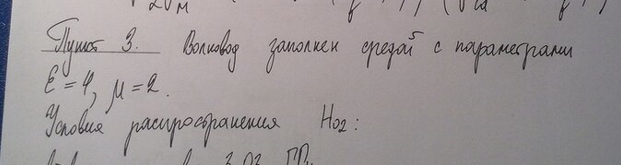 Пункт 3. Волновод заполнен средой с параметрами
ε = 4, μ = 2.
Условия распространения H₀₂: